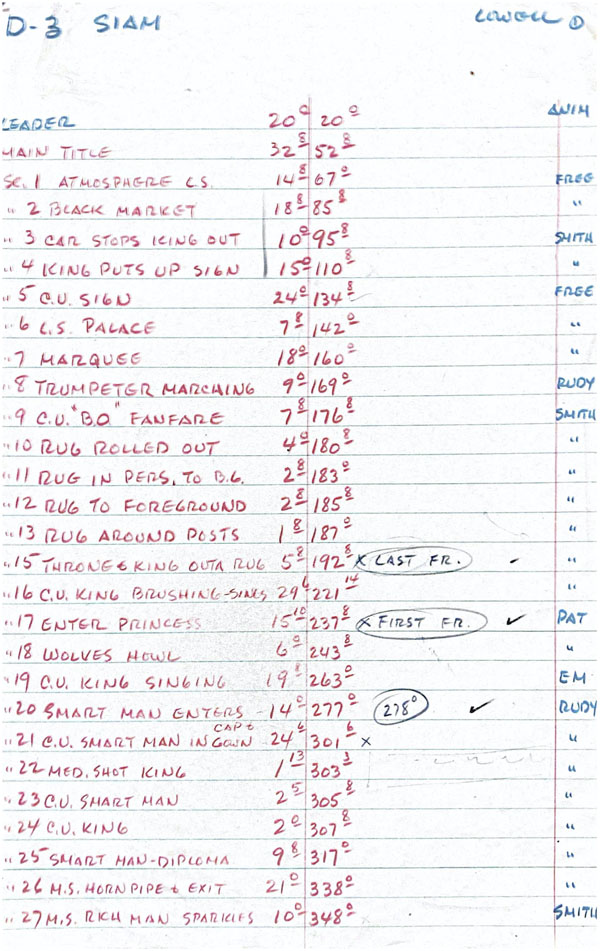 D-3 SIAM LOWELL ①
ANIM
LEADER 20⁰ 20⁰
MAIN TITLE 32⁸ 52⁸
SC. 1 ATMOSPHERE L.S. 14⁸ 67⁰ FREE
" 2 BLACK MARKET 18⁸ 85⁸ "
" 3 CAR STOPS KING OUT 10⁰ 95⁸ SMITH
" 4 KING PUTS UP SIGN 15⁰ 110⁸ "
" 5 C.U. SIGN 24⁰ 134⁸ FREE
" 6 L.S. PALACE 7⁸ 142⁰ "
" 7 MARQUEE 18⁰ 160⁰ "
" 8 TRUMPETER MARCHING 9⁰ 169⁰ RUDY
" 9 C.U. "B.O." FANFARE 7⁸ 176⁸ SMITH
" 10 RUG ROLLED OUT 4⁰ 180⁸ "
" 11 RUG IN PERS. TO B.G. 2⁸ 183⁰ "
" 12 RUG TO FOREGROUND 2⁸ 185⁸ "
" 13 RUG AROUND POSTS 1⁸ 187⁰ "
" 15 THRONE & KING OUTA RUG 5⁸ 192⁸ x LAST FR. "
" 16 C.U. KING BRUSHING-SINGS 29⁶ 221¹⁴ "
" 17 ENTER PRINCESS 15¹⁰ 237⁸ x FIRST FR. ✓ PAT
" 18 WOLVES HOWL 6⁰ 243⁸ "
" 19 C.U. KING SINGING 19⁸ 263⁰ EM
" 20 SMART MAN ENTERS - 14⁰ 277⁰ 278⁰ ✓ RUDY
" 21 C.U. SMART MAN IN CAP & GOWN - 24⁶ 301⁶ x "
" 22 MED. SHOT KING 1¹³ 303³ "
" 23 C.U. SMART MAN 2⁵ 305⁸ "
" 24 C.U. KING 2⁰ 307⁸ "
" 25 SMART MAN-DIPLOMA 9⁸ 317⁰ "
" 26 M.S. HORNPIPE & EXIT 21⁰ 338⁰ "
" 27 M.S. RICH MAN SPARKLES 10⁰ 348⁰ SMITH